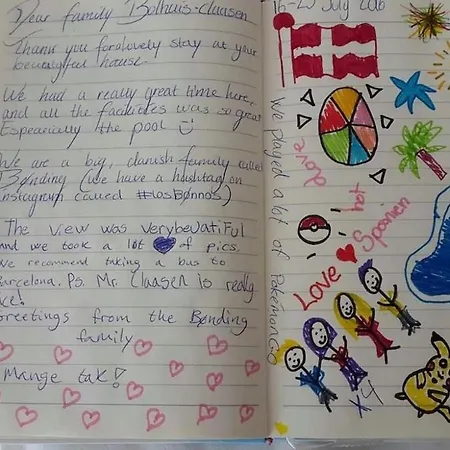 Dear family Bolhuis-claasen
Thank you for lovely stay at your
beautyful house
We had a really great time here,
and all the facilities was so great
Especarially the pool
We are a big, danish family called
Bønding (we have a hashtag on
instagram called #losbønnos)
The view was verybeuatiful
and we took a lot of pics.
We recommend taking a bus to
Barcelona. Ps. Mr. Claasen is really
Greetings from the Bønding
family
Mange tak!
16-23 July 2016
We played a lot of Pokémon GO
love
hot
Love Spanien
x4